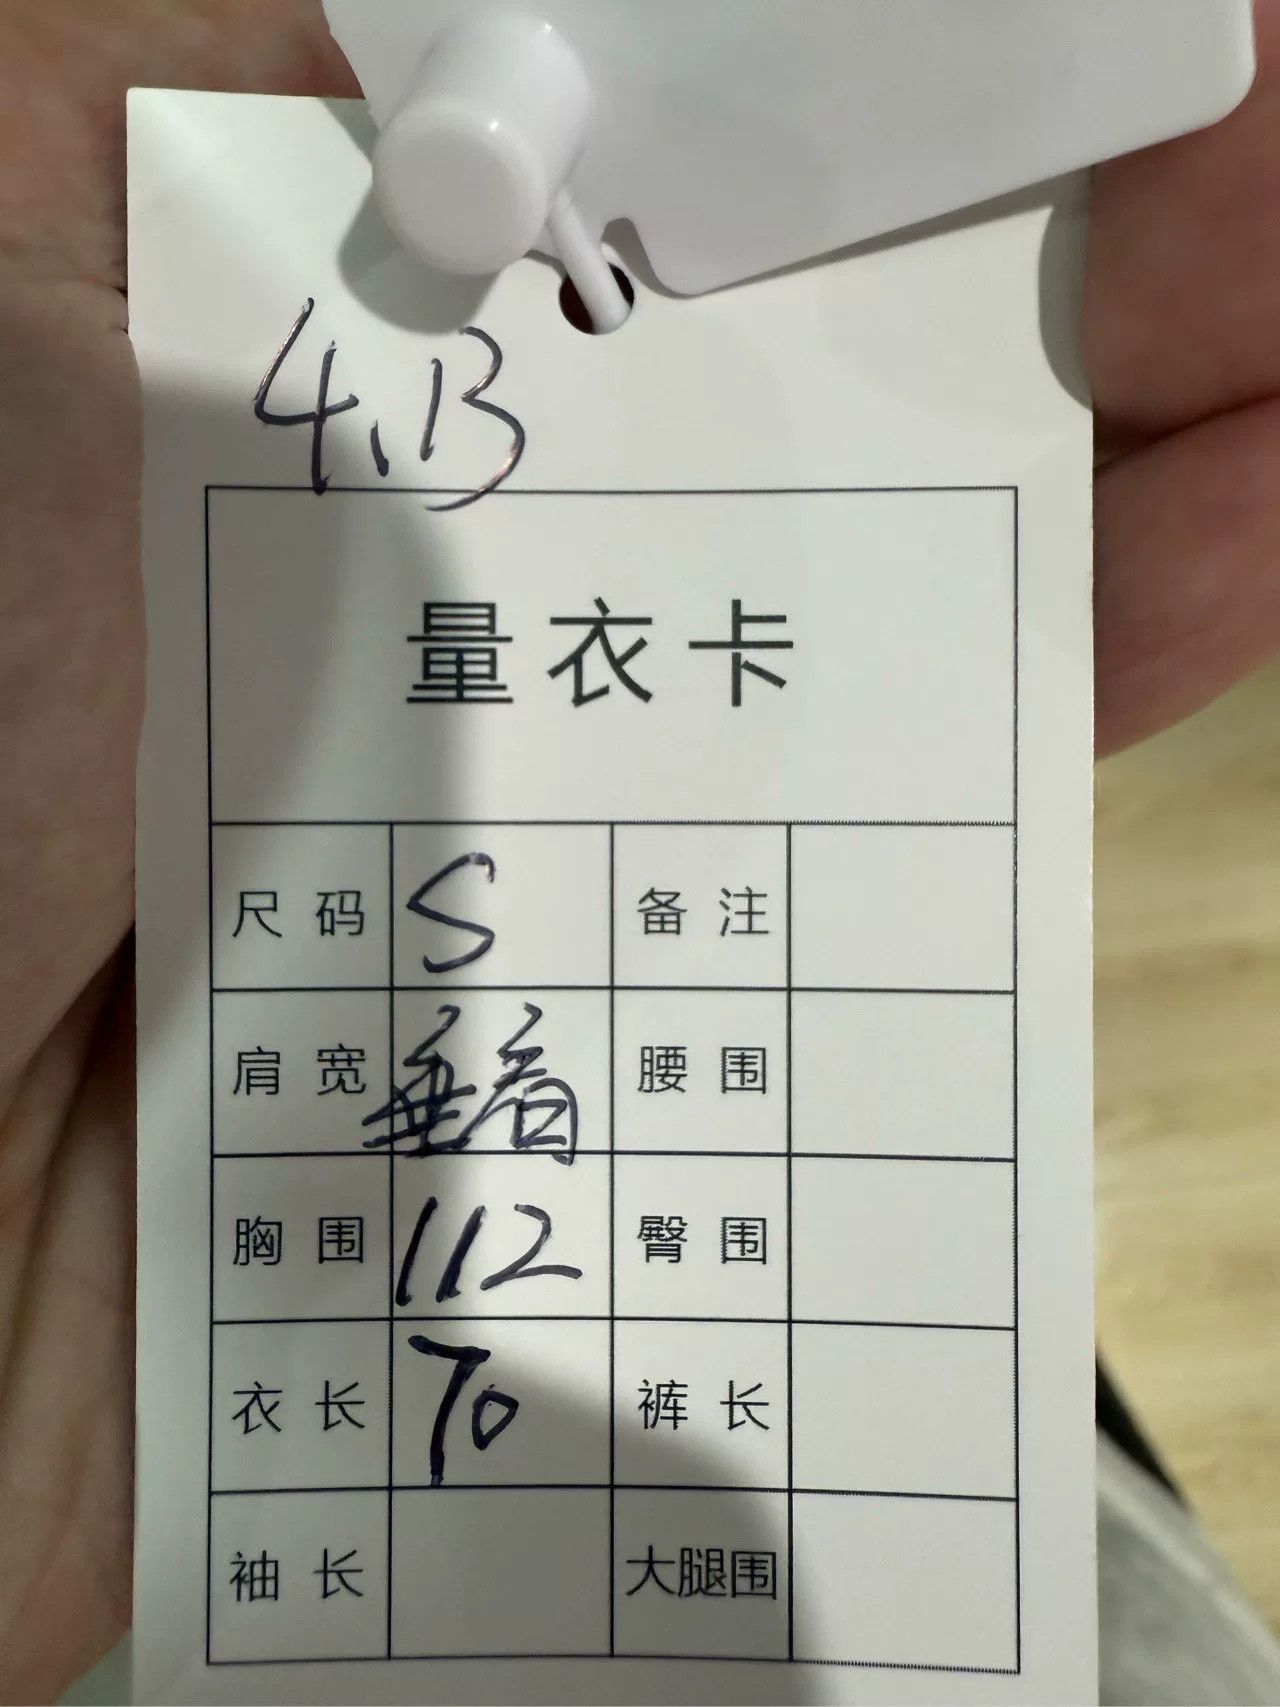 4.13
量衣卡
尺码 S 备注
肩宽 垂肩 腰围
胸围 112 臀围
衣长 70 裤长
袖长 大腿围